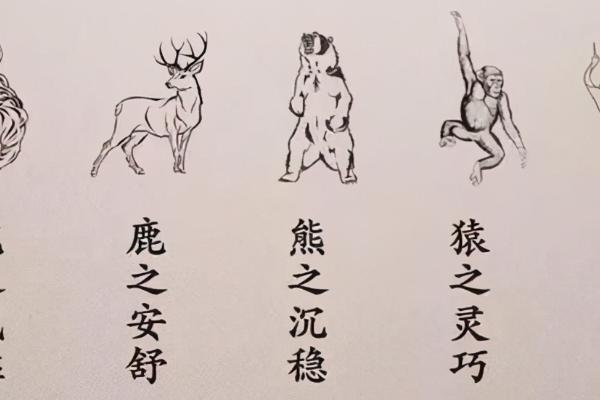 鹿之安舒
熊之沉稳
猿之灵巧